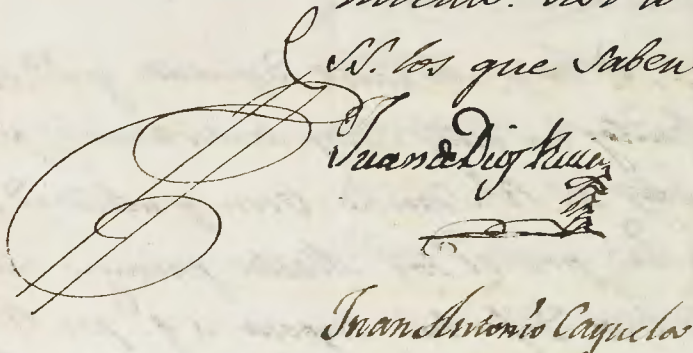 SS. los que saben
Juan de Dios
Juan Antonio Cayuela